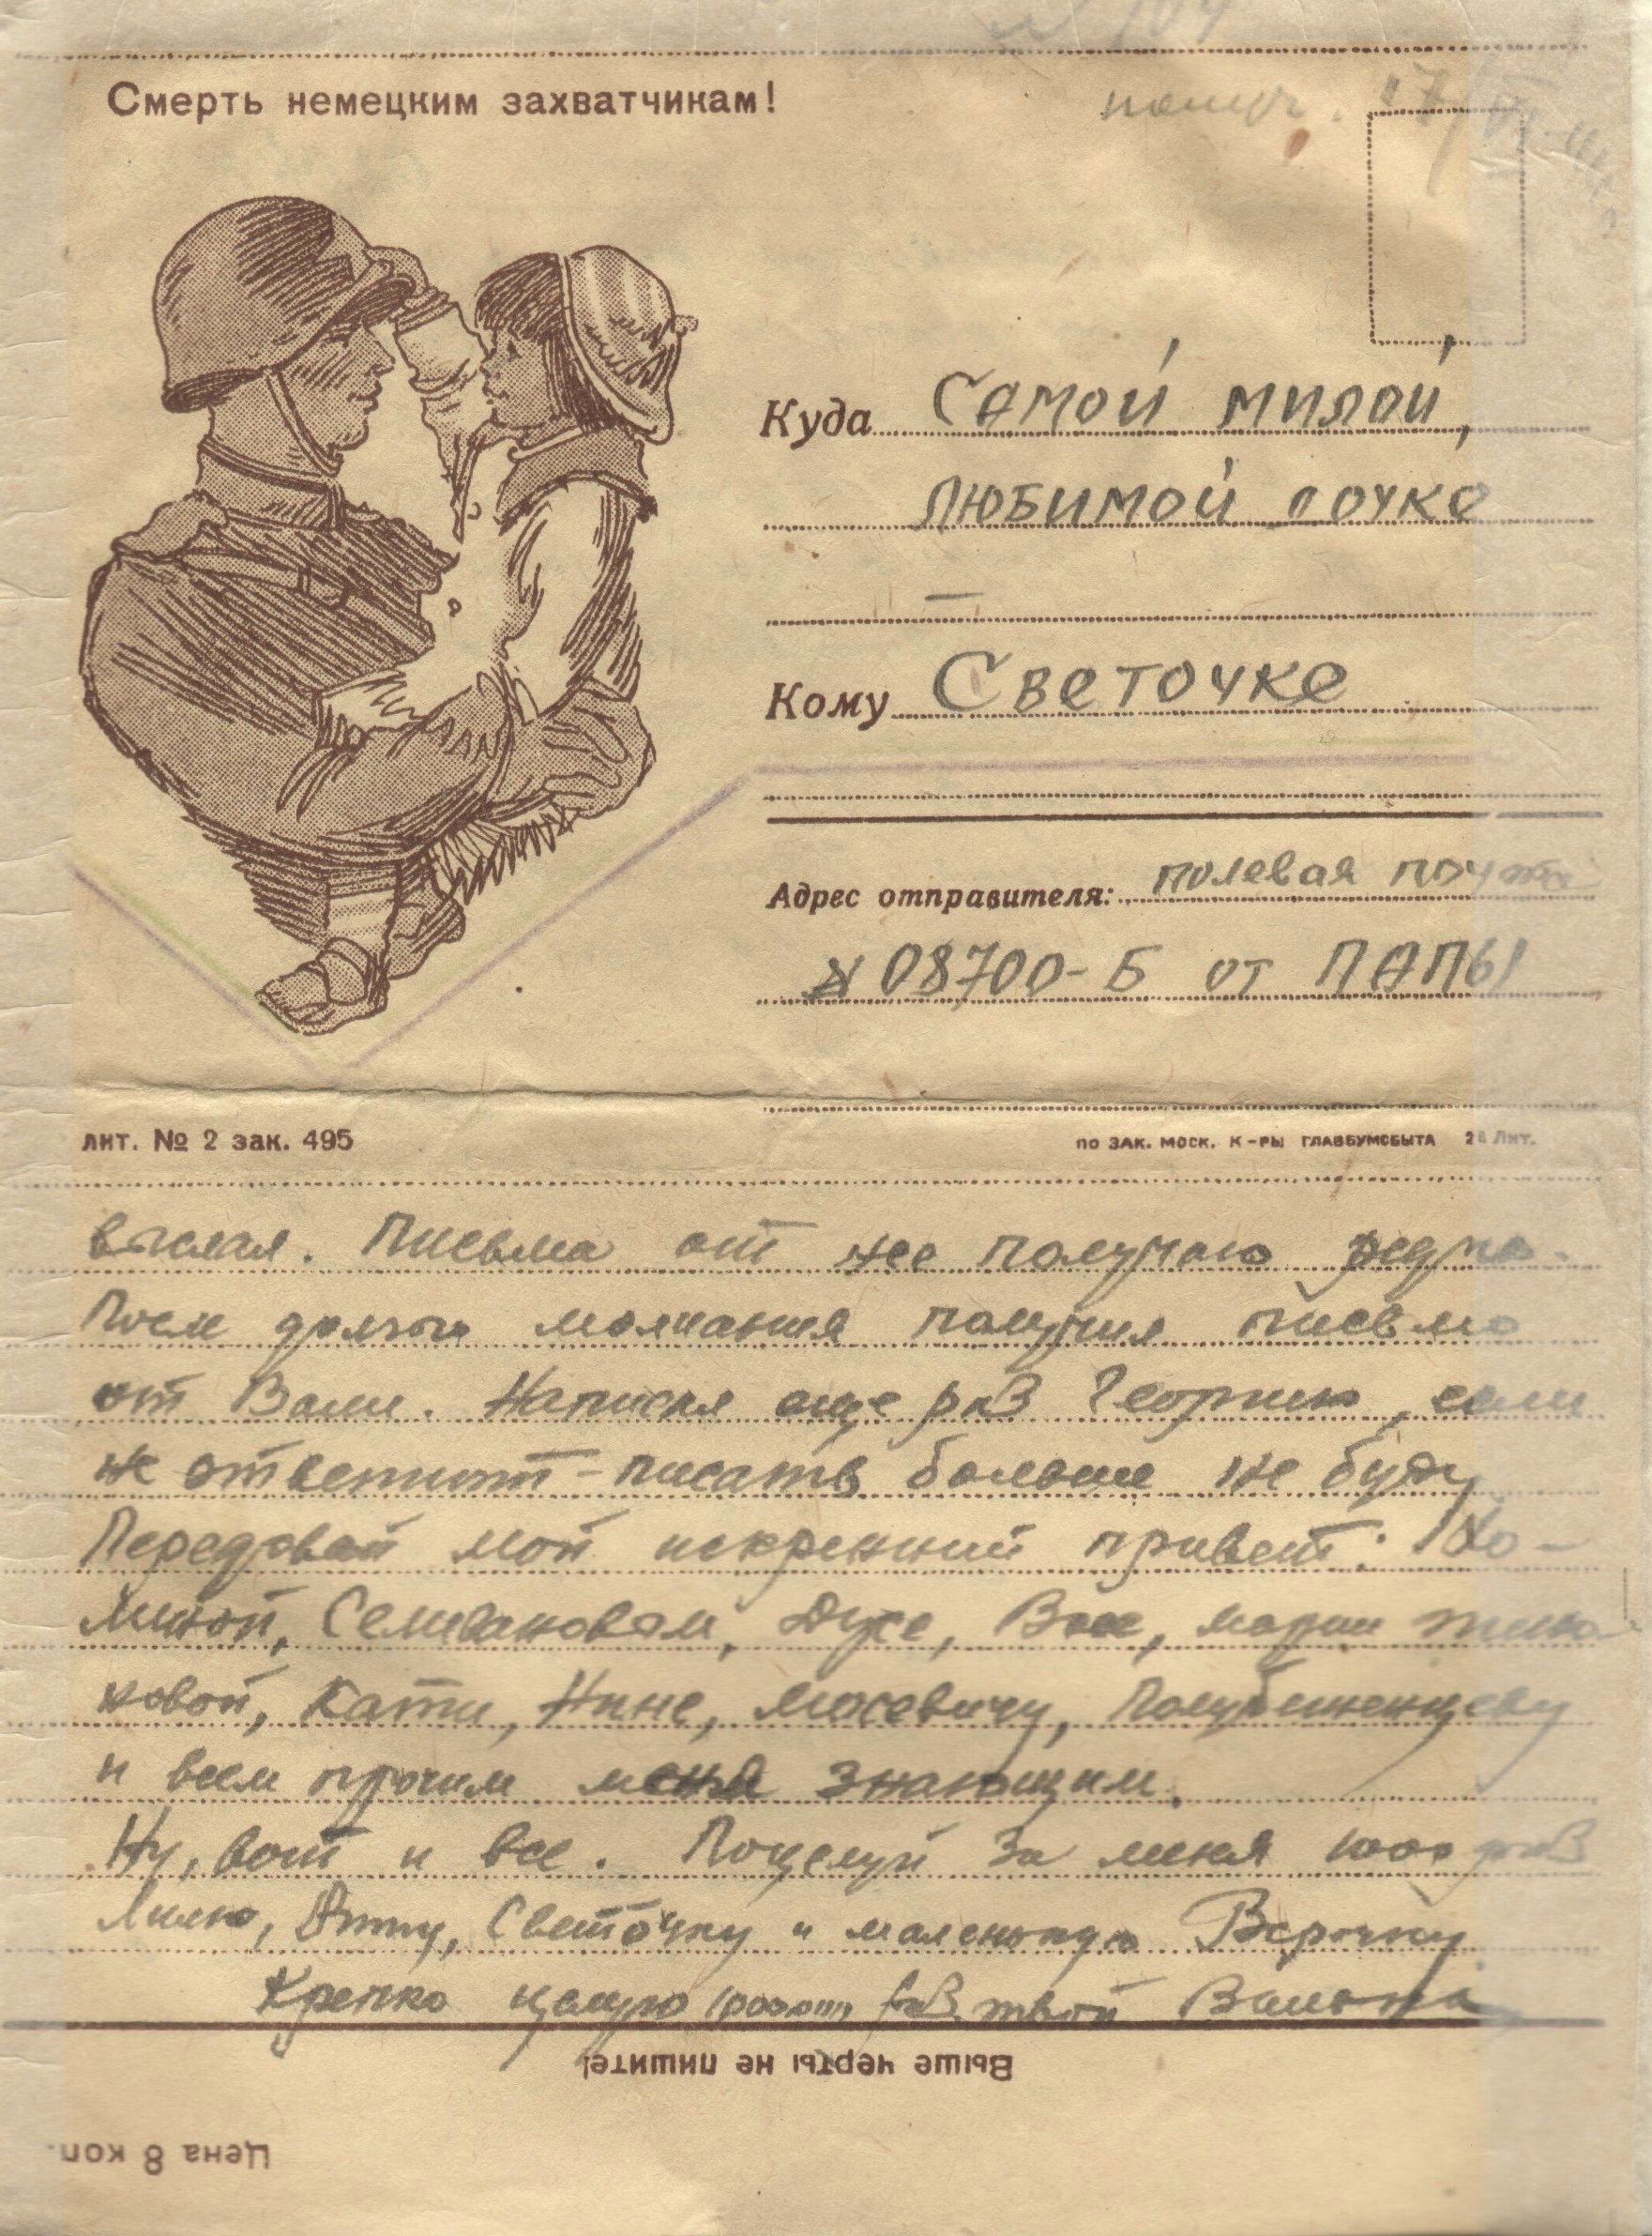 № 104
Смерть немецким захватчикам!
получ. 17/VI-
Куда Самой милой,
любимой дочке
Кому Светочке
Адрес отправителя: полевая почта
№ 08700-Б от ПАПЫ
лит. № 2 зак. 495
по зак. моск. к-ры главбумсбыта 2я Лит.
выслал. Письма от нее получаю редко.
После долгого молчания получил письмо
от Вали. Написал еще раз Георгию, если
не ответит - писать больше не буду
Передавай мой искренний привет: Хо-
миной, Селивановым, Дусе, Вале, Марии
ковой, Кати, Нине, Мосевичу,
и всем прочим меня знающим.
Ну, вот и все. Поцелуй за меня 1000 раз
Лилю, Светочку и маленькую Верочку
Крепко целую раз твой
Выше черты не пишите!
Цена 8 коп.